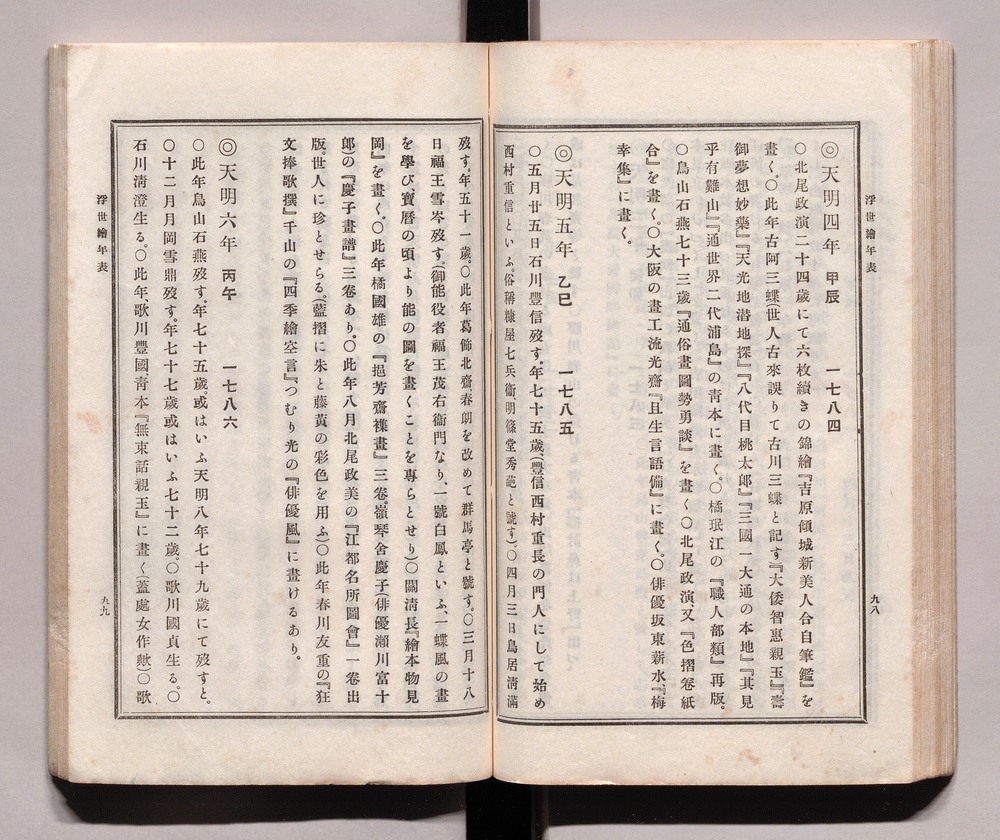 浮世繪年表
九八
◎天明四年 甲辰 一七八四
○北尾政演二十四歲にて六枚續きの錦繪『吉原傾城新美人合自筆鑑』を
畫く。○此年古阿三蝶(世人古來誤りて古川三蝶と記す)『大倭智惠親玉』『壽
御夢想妙藥』『天光地潜地探』『八代目桃太郎』『三國一大通の本地』『其見
乎有難山』『通世界二代浦島』の青本に畫く。○橘珉江の『職人部類』再版。
○鳥山石燕七十三歲『通俗畫圖勢勇談』を畫く○北尾政演、又『色摺卷紙
合』を畫く。○大阪の畫工流光齋『且生言語備』に畫く。○俳優坂東薪水、『梅
幸集』に畫く。
◎天明五年 乙巳 一七八五
○五月廿五日石川豐信歿す。年七十五歲(豐信西村重長の門人にして始め
西村重信といふ。俗稱糠屋七兵衞明篠堂秀葩と號す)。○四月三日鳥居淸滿
歿す。年五十一歲。○此年葛飾北齋、春朗を改めて群馬亭と號す。○三月十八
日福王雪岑歿す。(御能役者福王茂右衞門なり、一號白鳳といふ、一蝶風の畫
を學び、寶曆の頃より能の圖を畫くことを專らとせり)○關淸長『繪本物見
岡』を畫く。○此年橘國雄の『挹芳齋襍畫』三卷、嶺琴舍慶子(俳優瀨川富十
郎)の『慶子畫譜』三卷あり。○此年八月北尾政美の『江都名所圖會』一卷出
版。世人に珍とせらる。(藍摺に朱と藤黃の彩色を用ふ)○此年春川友重の『狂
文捧歌撰』千山の『四季繪空言』、つむり光の『俳優風』に畫けるあり。
◎天明六年 丙午 一七八六
○此年鳥山石燕歿す、年七十五歲或はいふ天明八年七十九歲にて歿すと。
○十二月月岡雪鼎歿す。年七十七歲或はいふ七十二歲。○歌川國貞生る。○
石川淸澄生る。○此年、歌川豐國、青本『無束話親玉』に畫く(蓋處女作歟)○歌
浮世繪年表
九九